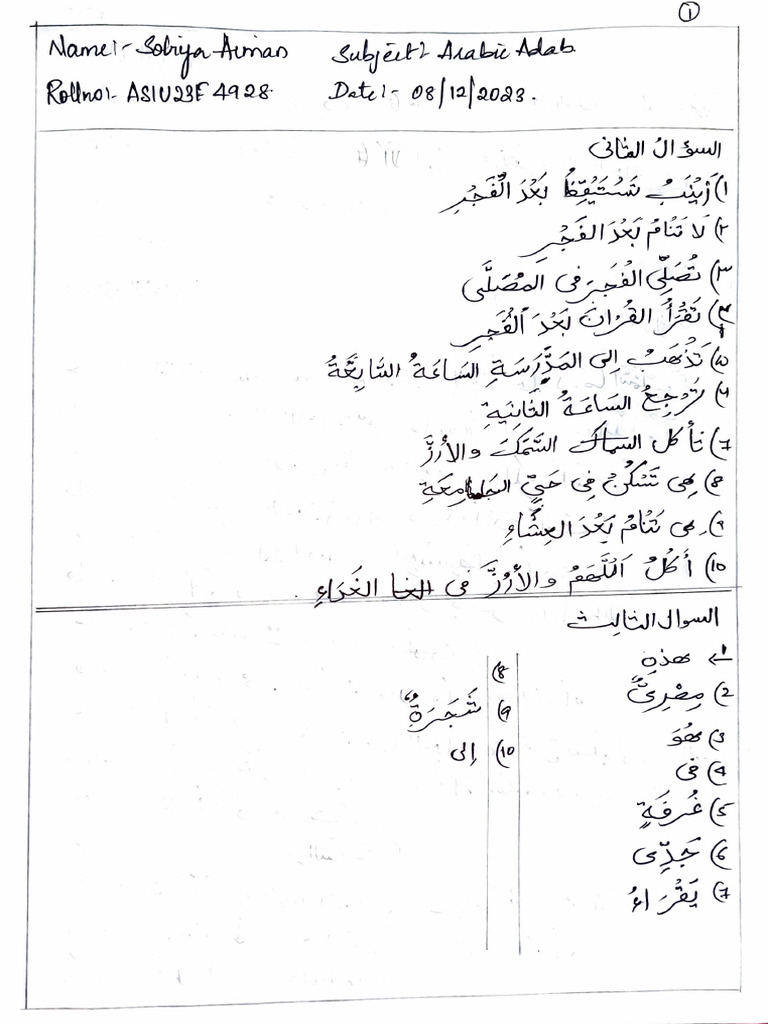 ①
Name:- Sobiya Aiman Subject:- Arabic Adab
Rollno:- ASIU23F4928. Date:- 08/12/2023.
السؤال الثانى
١) زَيْنَبُ تَسْتَيْقِظُ بَعْدَ الْفَجْرِ
٢) لَا تَنَامُ بَعْدَ الفَجْرِ
٣) تُصَلِّى الفَجْرَ فى المُصَلَّى
٤) تَقْرَأُ القُرْانَ بَعْدَ الْفَجْرِ
٥) تَذْهَبُ اِلى المَدْرَسَةِ السَاعَةُ السَّابِعَةُ
٦) تَرْجِعُ السَاعَةُ الثَّانِيةِ
٧) تأكل السماك السَّمَكَ والأرُزَّ
٨) هِى تَسْكُنُ فِى حَيِّ الجَامِعَةِ
٩) هى تَنَامُ بَعْدَ العِشَاءِ
١٠) أكُلُ اللَّحْمُ والأرُزَّ فى الغا الغَدَاءِ.
السوال الثالِث
1) هذهِ
2) مِصْرِىٌّ
3) هُوَ
4) فى
5) غُرفَةٍ
6) جَدِّى
7) يَقْرَاءُ
8)
9) شَجَرَةٌ
10) اِلى